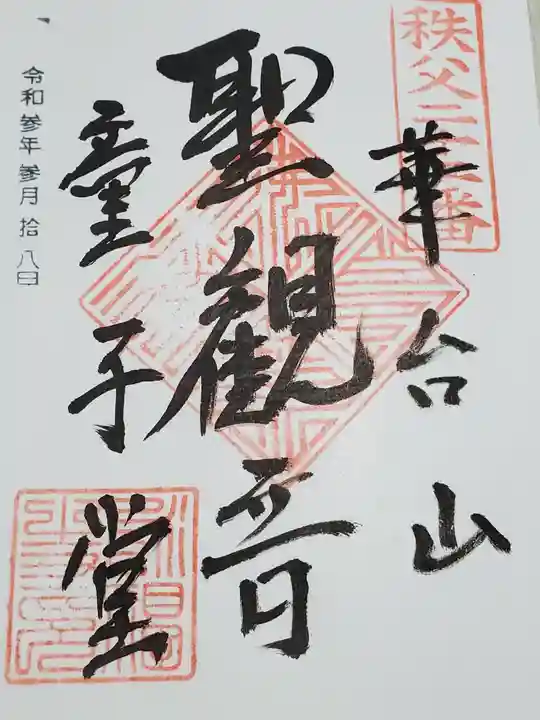 秩父二二番
華台山
聖觀音
童子堂
令和参年参月拾八日